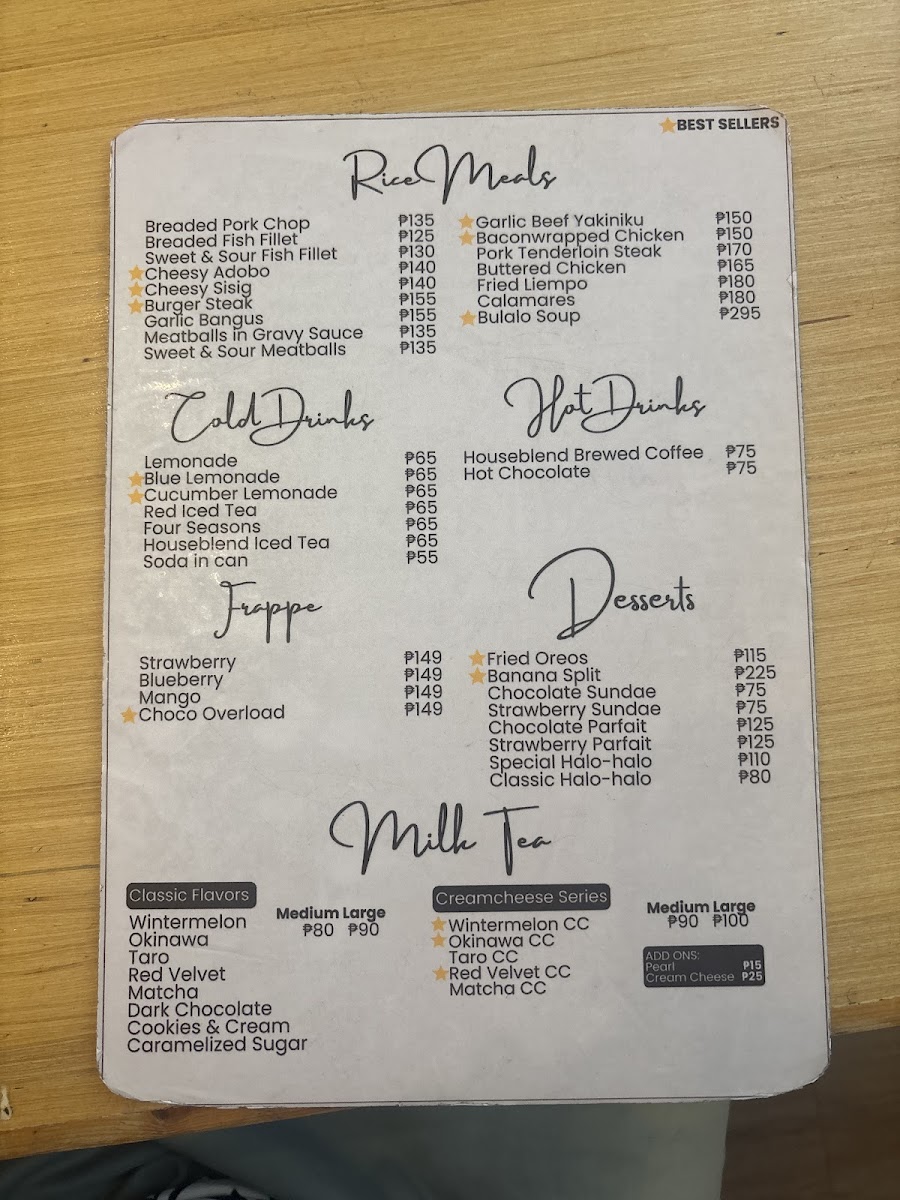 BEST SELLERS
Rice Meals
Breaded Pork Chop ₱135
Breaded Fish Fillet ₱125
Sweet & Sour Fish Fillet ₱130
Cheesy Adobo ₱140
Cheesy Sisig ₱140
Burger Steak ₱155
Garlic Bangus ₱155
Meatballs in Gravy Sauce ₱135
Sweet & Sour Meatballs ₱135
Garlic Beef Yakiniku ₱150
Baconwrapped Chicken ₱150
Pork Tenderloin Steak ₱170
Buttered Chicken ₱165
Fried Liempo ₱180
Calamares ₱180
Bulalo Soup ₱295
Cold Drinks
Lemonade ₱65
Blue Lemonade ₱65
Cucumber Lemonade ₱65
Red Iced Tea ₱65
Four Seasons ₱65
Houseblend Iced Tea ₱65
Soda in can ₱55
Hot Drinks
Houseblend Brewed Coffee ₱75
Hot Chocolate ₱75
Frappe
Strawberry ₱149
Blueberry ₱149
Mango ₱149
Choco Overload ₱149
Desserts
Fried Oreos ₱115
Banana Split ₱225
Chocolate Sundae ₱75
Strawberry Sundae ₱75
Chocolate Parfait ₱125
Strawberry Parfait ₱125
Special Halo-halo ₱110
Classic Halo-halo ₱80
Milk Tea
Classic Flavors
Medium Large
₱80 ₱90
Wintermelon
Okinawa
Taro
Red Velvet
Matcha
Dark Chocolate
Cookies & Cream
Caramelized Sugar
Creamcheese Series
Medium Large
₱90 ₱100
Wintermelon CC
Okinawa CC
Taro CC
Red Velvet CC
Matcha CC
ADD ONS:
Pearl ₱15
Cream Cheese ₱25